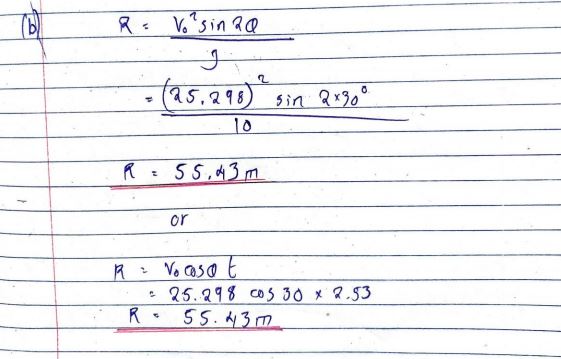 (b) R = V₀² sin 2θ
g
= (25.298)² sin 2×30°
10
R = 55.43 m
or
R = V₀ cosθ t
= 25.298 cos 30 × 2.53
R = 55.43 m